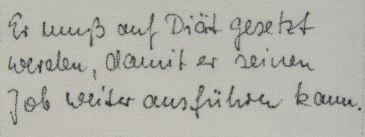 Er muß auf Diät gesetzt
werden, damit er seinen
Job weiter ausführen kann.